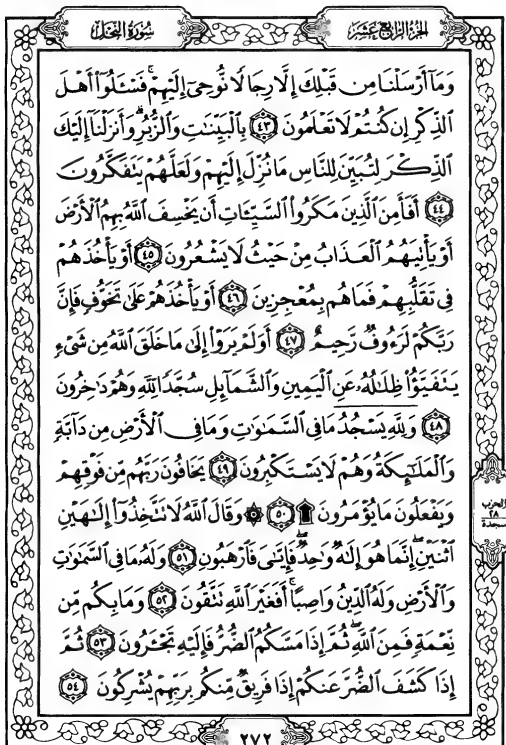 سُورَةُ النَّحْلِ
الجُزْءُ الرَّابِعَ عَشَرَ
وَمَآ أَرْسَلْنَا مِن قَبْلِكَ إِلَّا رِجَالًا نُّوحِىٓ إِلَيْهِمْ ۚ فَسْـَٔلُوٓا۟ أَهْلَ
ٱلذِّكْرِ إِن كُنتُمْ لَا تَعْلَمُونَ ٤٣ بِٱلْبَيِّنَـٰتِ وَٱلزُّبُرِ ۗ وَأَنزَلْنَآ إِلَيْكَ
ٱلذِّكْرَ لِتُبَيِّنَ لِلنَّاسِ مَا نُزِّلَ إِلَيْهِمْ وَلَعَلَّهُمْ يَتَفَكَّرُونَ
٤٤ أَفَأَمِنَ ٱلَّذِينَ مَكَرُوا۟ ٱلسَّيِّـَٔاتِ أَن يَخْسِفَ ٱللَّهُ بِهِمُ ٱلْأَرْضَ
أَوْ يَأْتِيَهُمُ ٱلْعَذَابُ مِنْ حَيْثُ لَا يَشْعُرُونَ ٤٥ أَوْ يَأْخُذَهُمْ
فِى تَقَلُّبِهِمْ فَمَا هُم بِمُعْجِزِينَ ٤٦ أَوْ يَأْخُذَهُمْ عَلَىٰ تَخَوُّفٍ فَإِنَّ
رَبَّكُمْ لَرَءُوفٌ رَّحِيمٌ ٤٧ أَوَلَمْ يَرَوْا۟ إِلَىٰ مَا خَلَقَ ٱللَّهُ مِن شَىْءٍ
يَتَفَيَّؤُا۟ ظِلَـٰلُهُۥ عَنِ ٱلْيَمِينِ وَٱلشَّمَآئِلِ سُجَّدًا لِّلَّهِ وَهُمْ دَٰخِرُونَ
٤٨ وَلِلَّهِ يَسْجُدُ مَا فِى ٱلسَّمَـٰوَٰتِ وَمَا فِى ٱلْأَرْضِ مِن دَآبَّةٍ
وَٱلْمَلَـٰٓئِكَةُ وَهُمْ لَا يَسْتَكْبِرُونَ ٤٩ يَخَافُونَ رَبَّهُم مِّن فَوْقِهِمْ
وَيَفْعَلُونَ مَا يُؤْمَرُونَ ۩ ٥٠ ۞ وَقَالَ ٱللَّهُ لَا تَتَّخِذُوٓا۟ إِلَـٰهَيْنِ
ٱثْنَيْنِ ۖ إِنَّمَا هُوَ إِلَـٰهٌ وَٰحِدٌ ۖ فَإِيَّـٰىَ فَٱرْهَبُونِ ٥١ وَلَهُۥ مَا فِى ٱلسَّمَـٰوَٰتِ
وَٱلْأَرْضِ وَلَهُ ٱلدِّينُ وَاصِبًا ۚ أَفَغَيْرَ ٱللَّهِ تَتَّقُونَ ٥٢ وَمَا بِكُم مِّن
نِّعْمَةٍ فَمِنَ ٱللَّهِ ۖ ثُمَّ إِذَا مَسَّكُمُ ٱلضُّرُّ فَإِلَيْهِ تَجْـَٔرُونَ ٥٣ ثُمَّ
إِذَا كَشَفَ ٱلضُّرَّ عَنكُمْ إِذَا فَرِيقٌ مِّنكُم بِرَبِّهِمْ يُشْرِكُونَ ٥٤
الحزب
٢٨
سجدة
٢٧٢